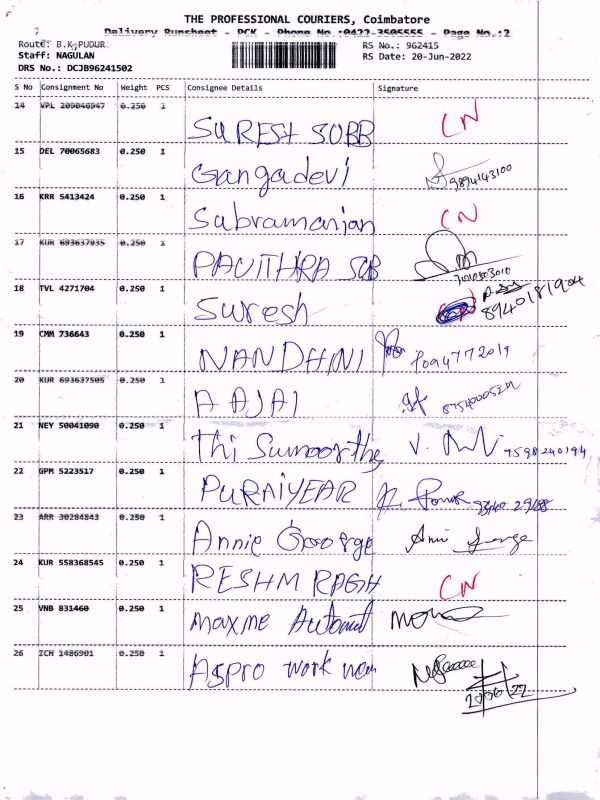 THE PROFESSIONAL COURIERS, Coimbatore
Delivery Runsheet - PCK - Phone No :0422-3505555 - Page No.:2
Route: B.K.PUDUR
RS No.: 962415
Staff: NAGULAN
RS Date: 20-Jun-2022
DRS No.: DCJB96241502
S No Consignment No Weight PCS Consignee Details Signature
14 VPL 209046947 0.250 1 SURESH SUBB CN
15 DEL 70065683 0.250 1 Gangadevi 9894143100
16 KRR 5413424 0.250 1 Subramanian CN
17 KUR 693637935 0.250 1 PAVITHRA SUB
18 TVL 4271704 0.250 1 Suresh 8940181904
19 CMM 736643 0.250 1 NANDHINI
20 KUR 693637505 0.250 1 A AJAI
21 NEY 50041090 0.250 1 V. 7598240194
22 GPM 5223517 0.250 1 PURAIYEAR
23 ARR 30284843 0.250 1 Annie George
24 KUR 558368545 0.250 1 RESHM RAGH CN
25 VNB 831460 0.250 1 Maxme Automt
26 ICH 1486901 0.250 1 Aspro work